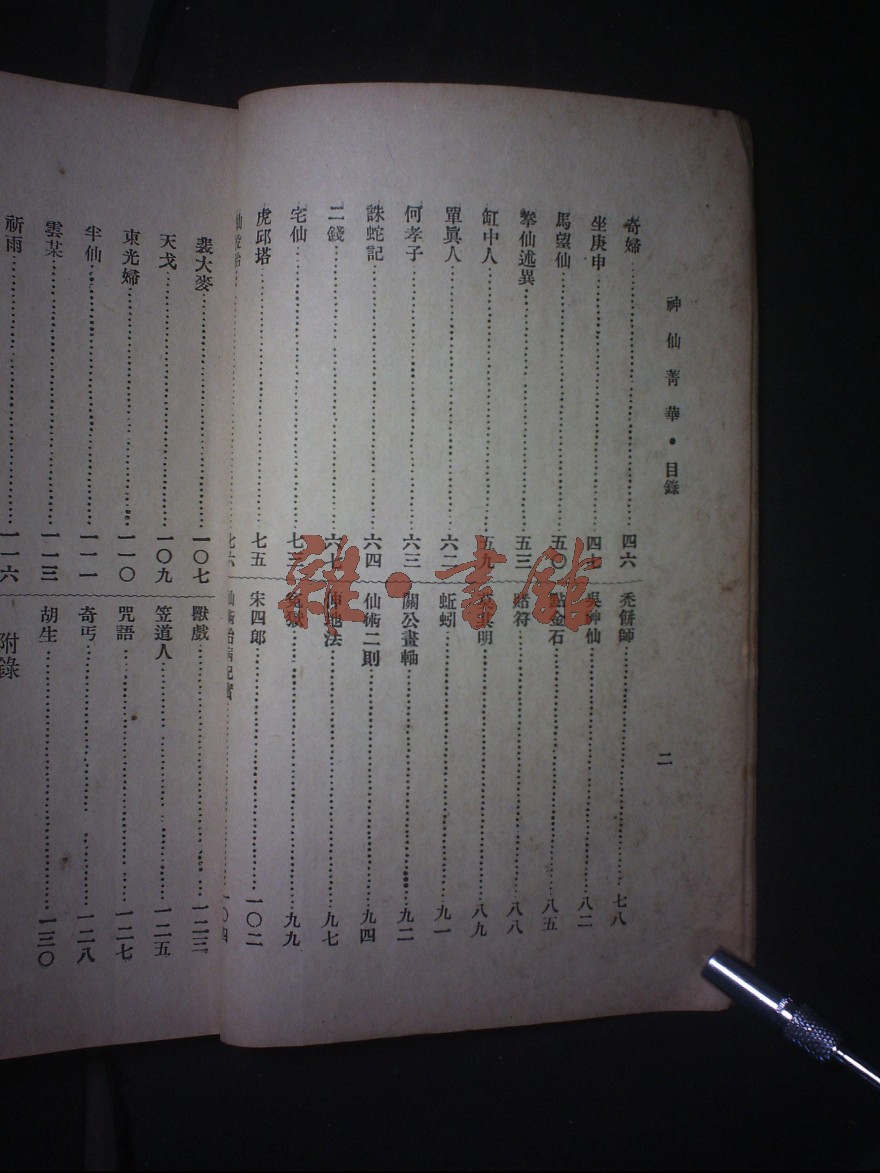 神仙菁華・目錄
二
奇婦……四六
坐庚申……四七
馬望仙……五〇
拳仙述異……五三
缸中人……五九
單眞人……六二
何孝子……六三
誅蛇記……六四
二錢……六七
宅仙……七三
虎邱塔……七五
七六
禿餅師……七八
吳神仙……八二
點金石……八五
賭符……八八
明……八九
蚯蚓……九一
關公畫軸……九二
仙術二則……九四
伸地法……九七
冤獄……九九
宋四郎……一〇二
仙術治病記實……一〇四
裴大麥……一〇七
天戈……一〇九
東光婦……一一〇
半仙……一一一
雲某……一一三
祈雨……一一六
獸戲……一二三
笠道人……一二五
咒語……一二七
奇丐……一二八
胡生……一三〇
附錄
雜・書館